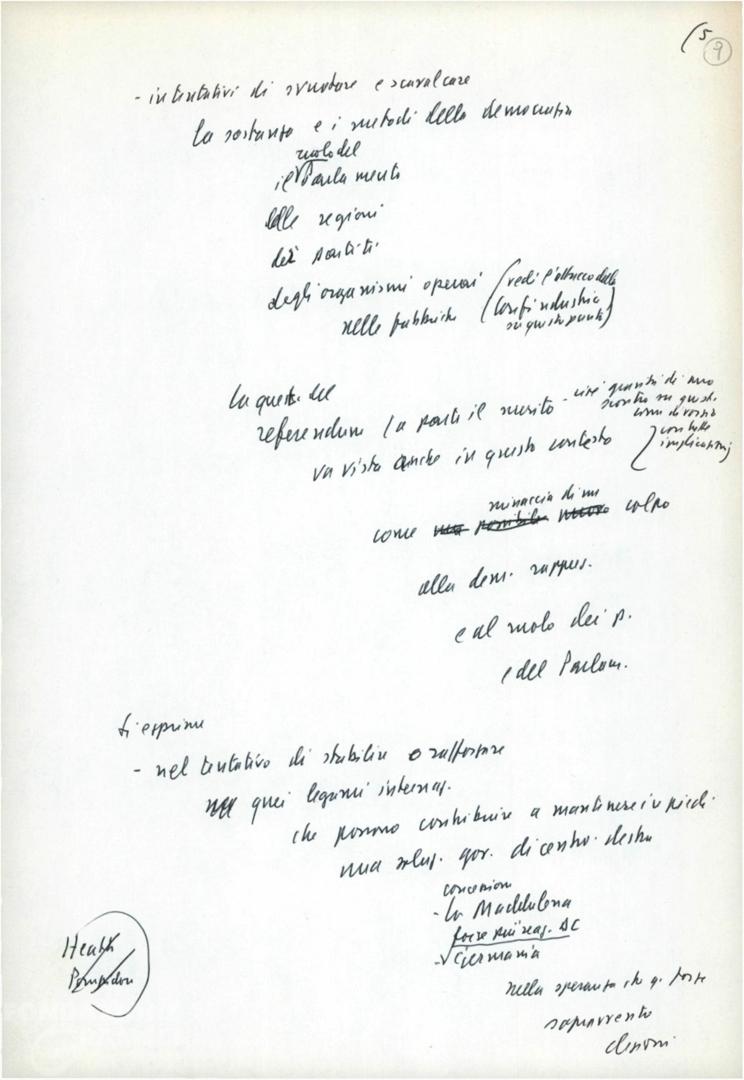 (5
9
- in tentativi di svuotare e scavalcare
la sostanza e i metodi della democrazia
ruolo del
il Parlamento
delle regioni
dei partiti
degli organismi operai (vedi l'attacco della
nelle fabbriche Confindustria
su questo punto)
la quest. del
referendum (a parte il merito - cioè quindi di uno
scontro su questi
temi diversi
con tutte
implicazioni)
va vista anche in questo contesto
minaccia di un
come una possibile nuovo colpo
alla dem. rappres.
e al ruolo dei p.
e del Parlam.
Si esprime
- nel tentativo di stabilire o rafforzare
quei legami internaz.
che possono contribuire a mantenere in piedi
una soluz. gov. di centro-destra
concessioni
- la Maddalena
forze più reaz. DC
- Germania
nella speranza che q. forze
sopravvento
elezioni
Heath
Pompidou